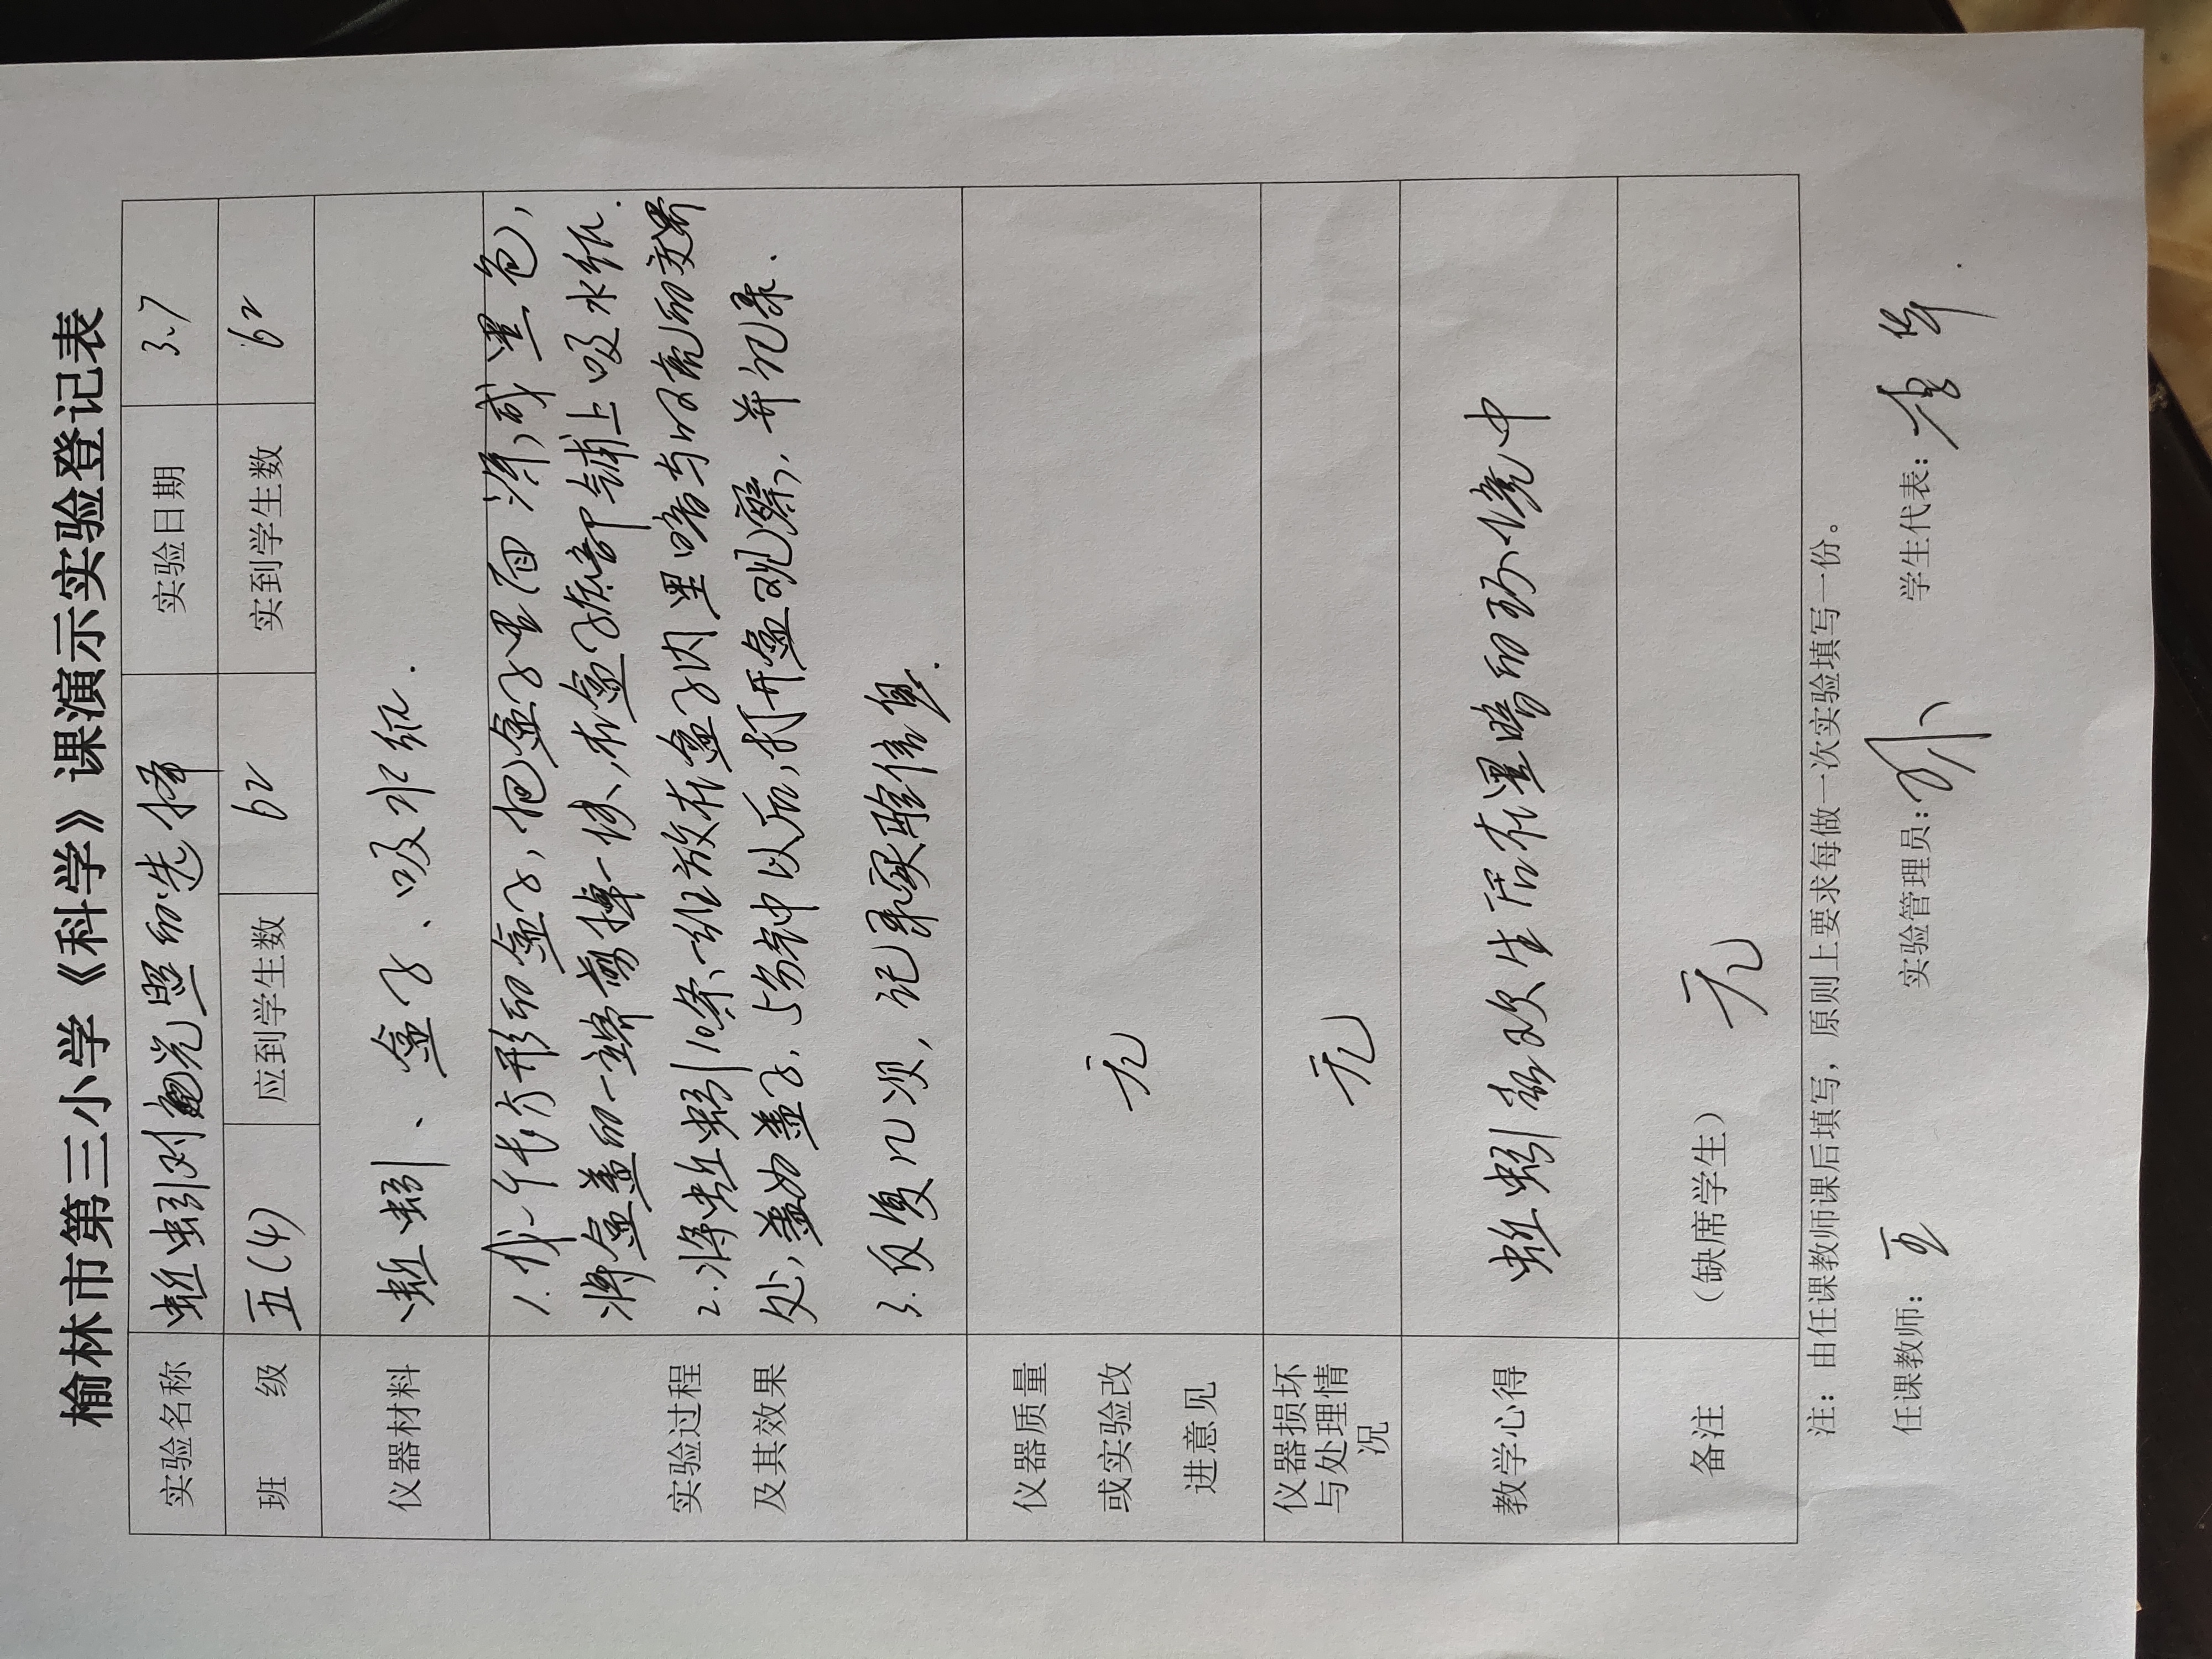 榆林市第三小学《科学》课演示实验登记表
实验名称 蚯蚓对光照的选择 实验日期 3.7
班 级 五(4) 应到学生数 62 实到学生数 62
仪器材料 蚯蚓、盒子、吸水纸.
实验过程
及其效果
1.找个长方形的盒子,把盒子里面涂成黑色,
将盒盖的一端剪掉一块,在盒子底部铺上吸水纸.
2.将蚯蚓10条一组放在盒子内黑暗与明亮的交界
处,盖好盖子,5分钟以后,打开盒观察,并记录.
3.反复几次,记录实验信息.
仪器质量
或实验改
进意见
无
仪器损坏
与处理情
况
无
教学心得 蚯蚓喜欢生活在黑暗的环境中
备注 (缺席学生) 无
注:由任课教师课后填写,原则上要求每做一次实验填写一份。
任课教师: 王 实验管理员: 学生代表: